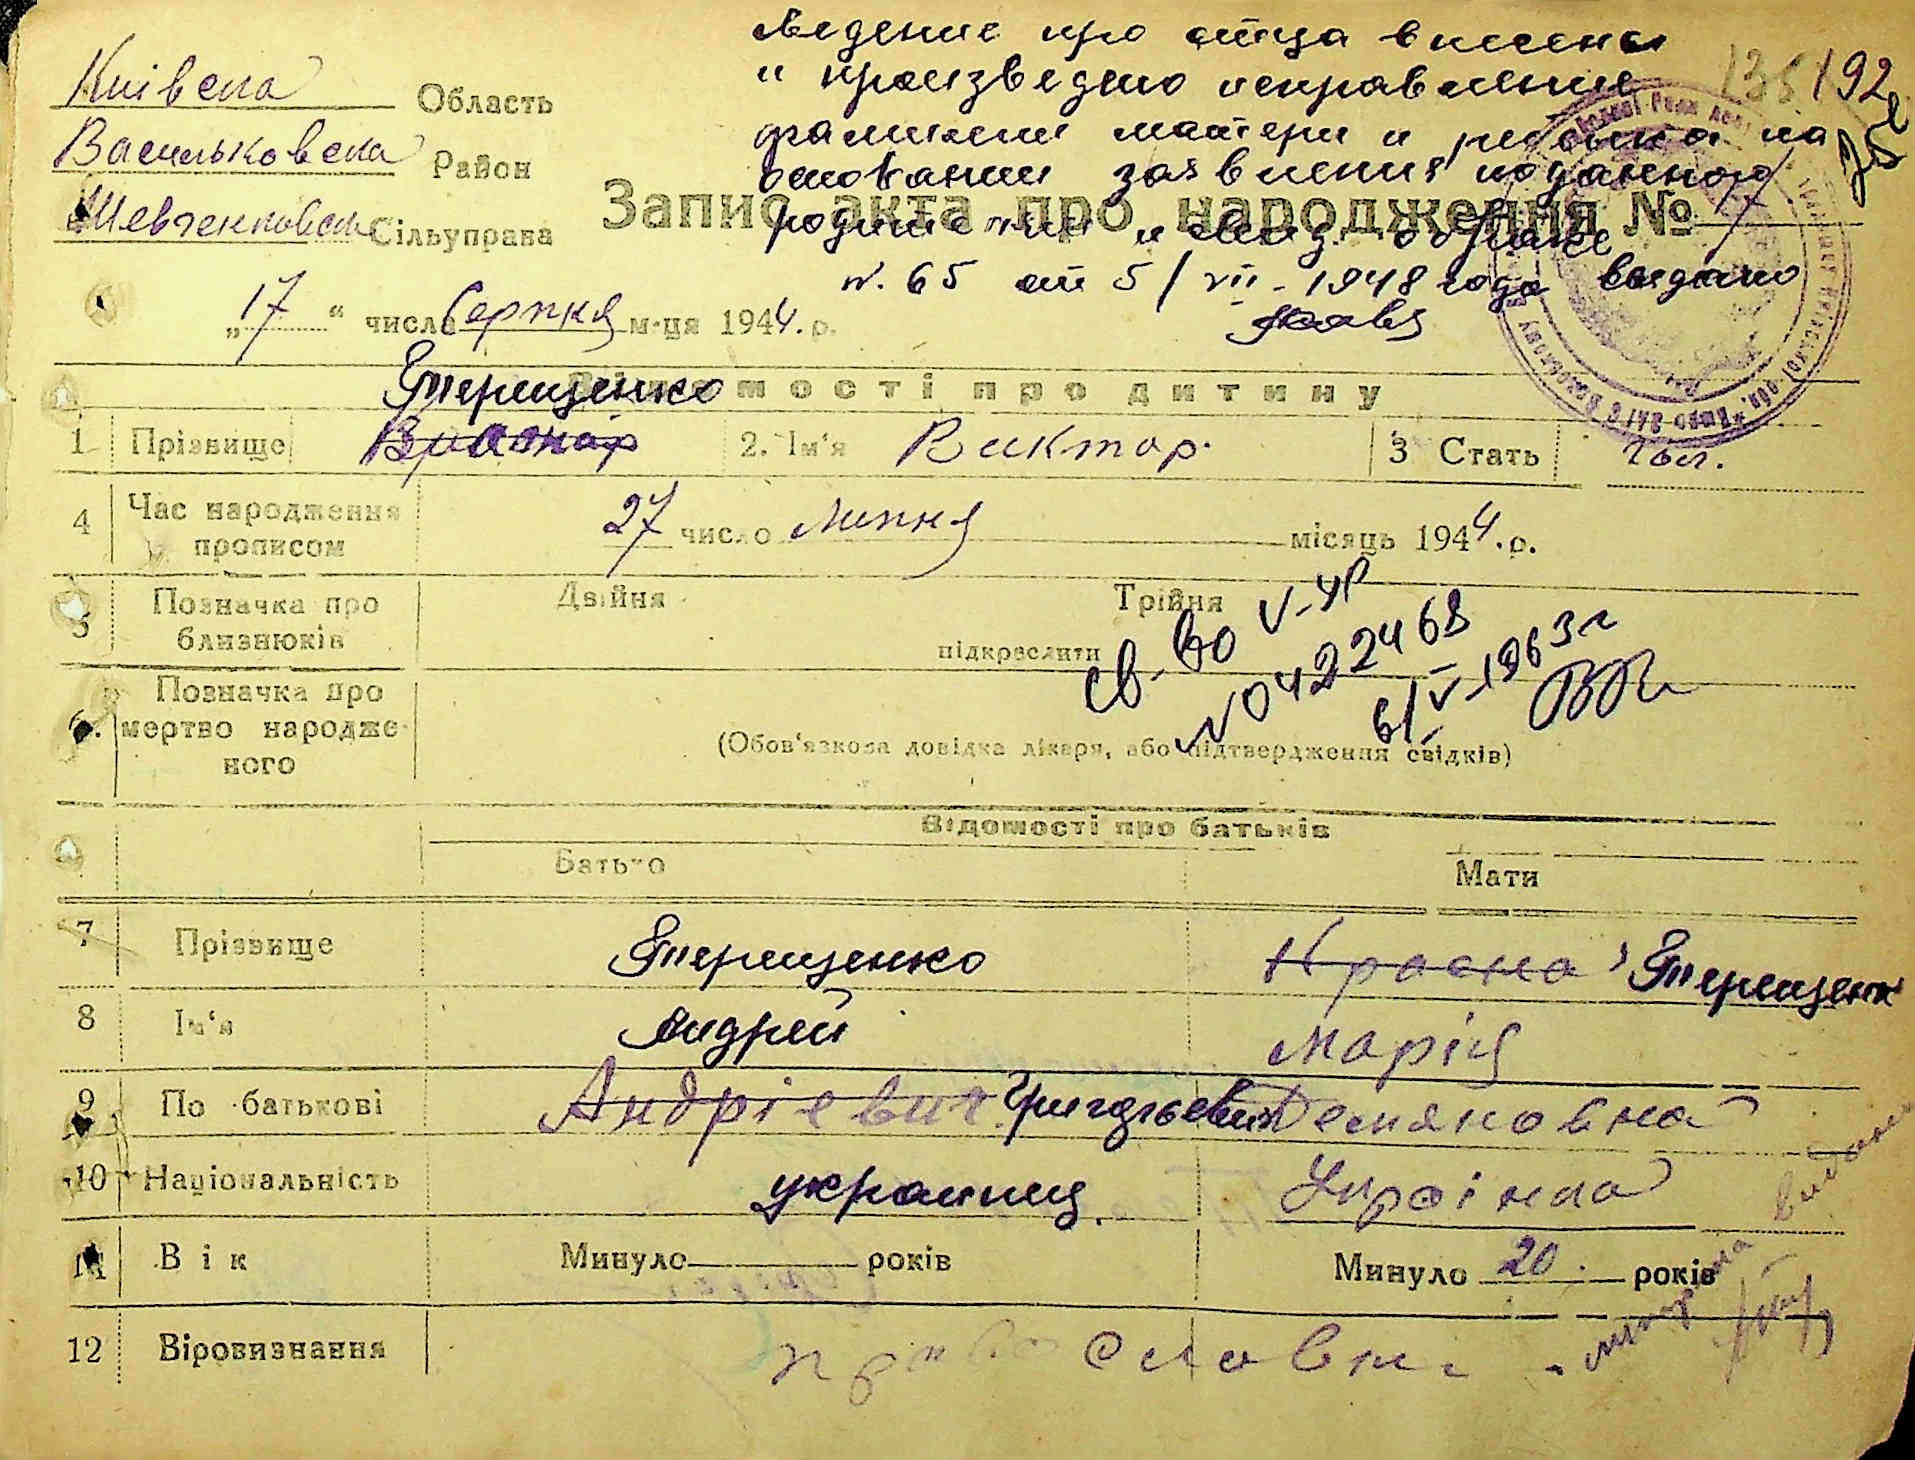 Київска Область
Васильковска Район
Шевченковска Сільуправа
ведение про отца внесены
и произведено исправление
фамилии матери и ребенка на
основании заявления поданного
родителями и свид. о браке
N. 65 от 5/VII-1948 года выдано
135 192
Запис акта про народження №
„17“ числа Серпня м-ця 1944.р.
Терещенко
Відомості про дитину
1 Прізвище 2. Ім'я Виктор. 3 Стать чол.
4 Час народження прописом 27 число Липня місяць 1944.р.
5 Позначка про близнюків Двійня Трійня
підкреслити
св-во V-УР
N 0422468
6/V-1963г
6. Позначка про мертво народженого
(Обов'язкова довідка лікаря, або підтвердження свідків)
Відомості про батьків
Батько Мати
7 Прізвище Терещенко Красна Терещенк
8 Ім'я Андрей Марія
9 По батькові Андріевич Григорьевич Демяновна
10 Національність украинец. Українка
11 Вік Минуло років Минуло 20 років
12 Віровизнання православні